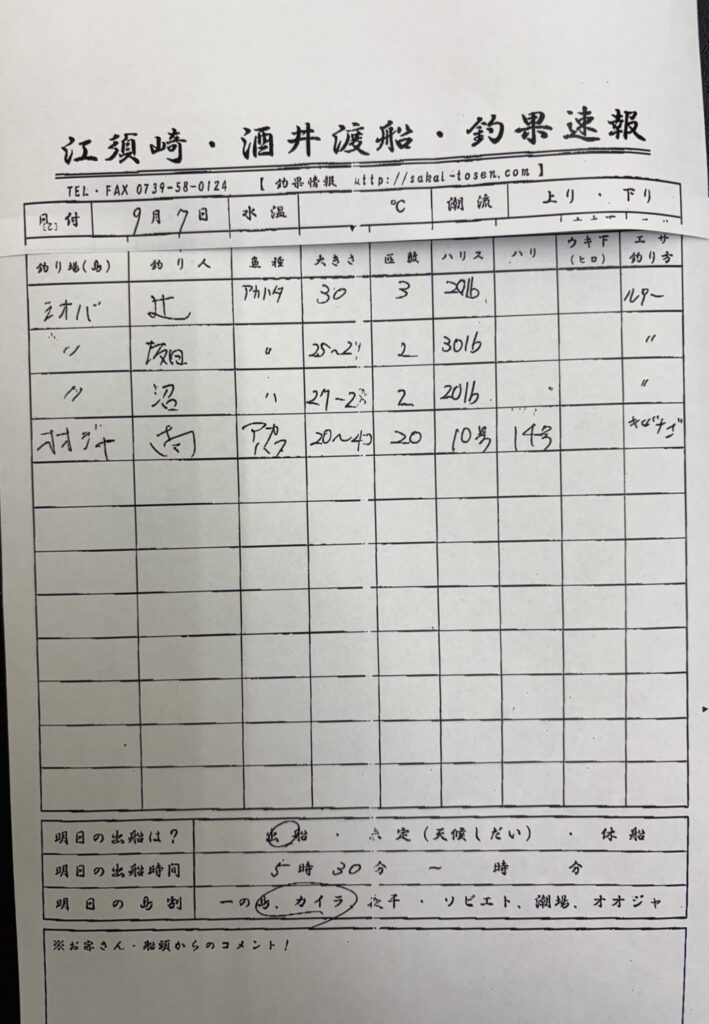 江須崎・酒井渡船・釣果速報
TEL・FAX 0739-58-0124 【 釣果情報 http://sakai-tosen.com 】
日付 9月7日 水温 ℃ 潮流 上り・下り
釣り場(島) 釣り人 魚種 大きさ 匹数 ハリス ハリ ウキ下(ヒロ) エサ釣り方
シオバ 辻 アカハタ 30 3 20lb ルアー
〃 坂田 〃 2 30lb 〃
〃 沼 〃 2 20lb 〃
オオジャ アカハタ 20 10号 14号 キビナゴ
明日の出船は? 出船・未定(天候しだい)・休船
明日の出船時間 5時30分 ~ 時 分
明日の島割 一の島、カイラ、 ・ソビエト、潮場、オオジャ
※お客さん・船頭からのコメント!